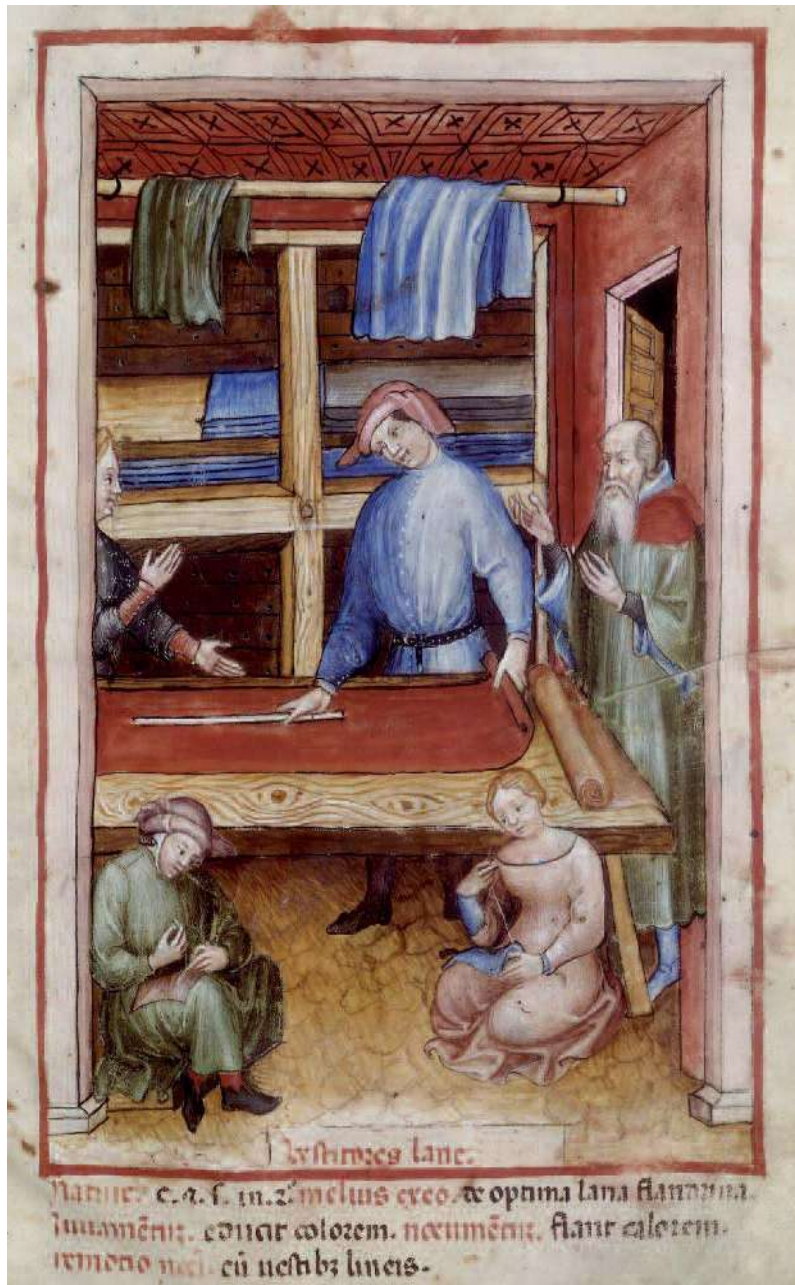 Vestitores lane.
Nature. c. 7. s. in. 2º melius ex eo. de optima lana flandrina.
Iuuamētum. educit colorem. nocumētum. stant calorem.
remotio noc̄i. cū uestibꝫ lineis.